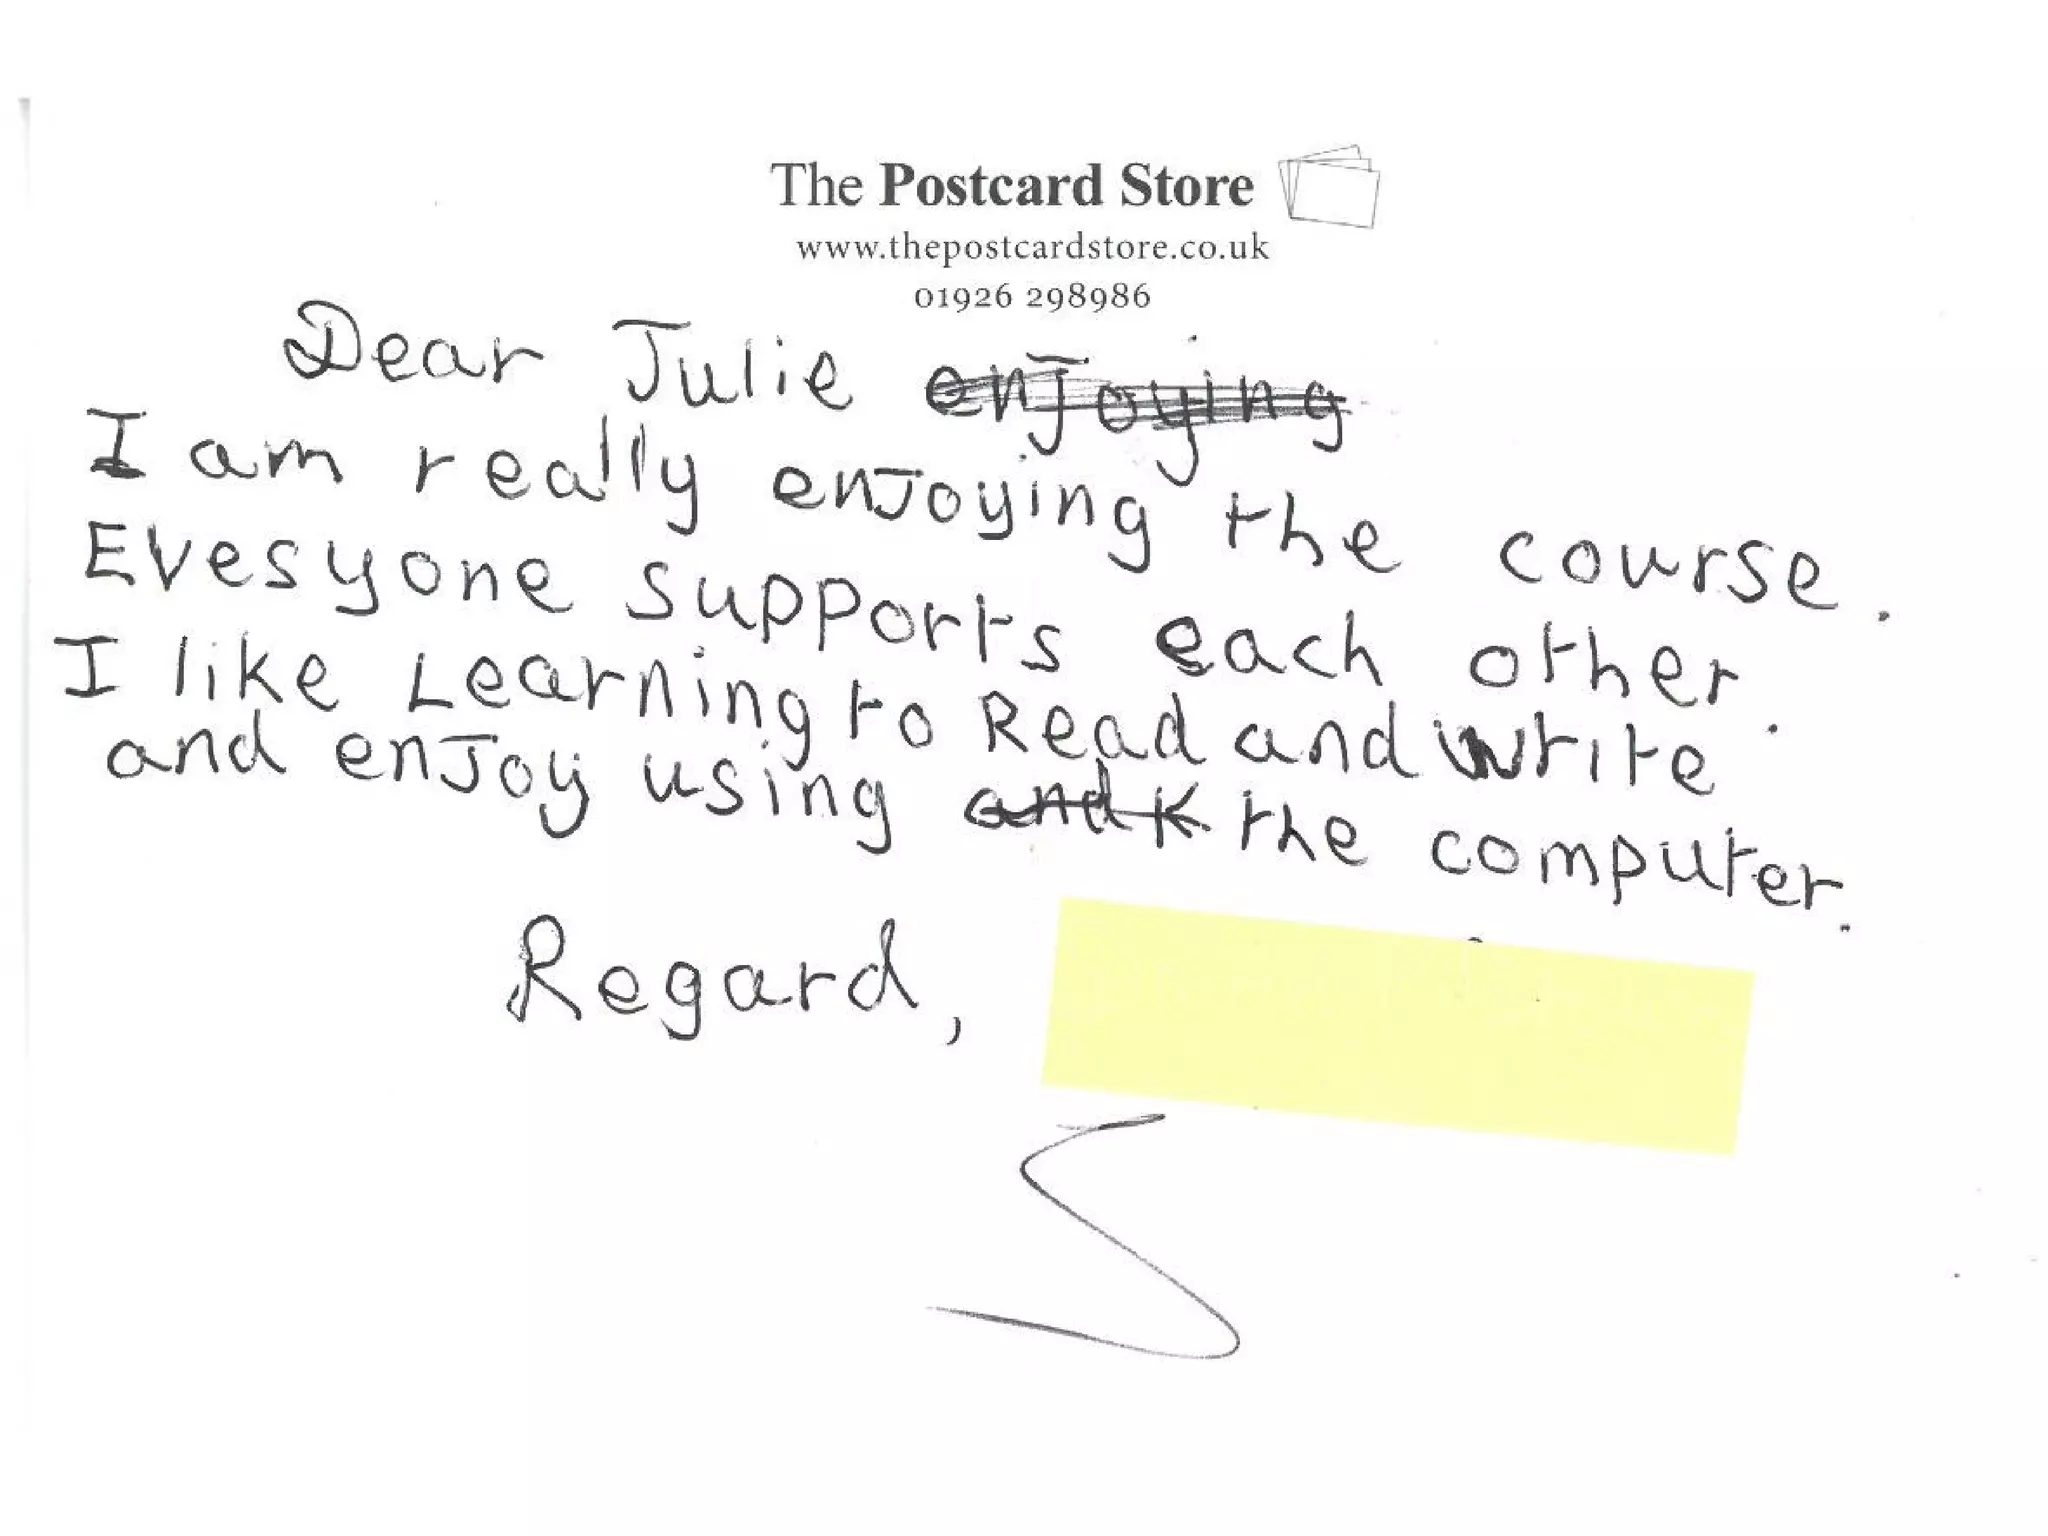 The Postcard Store
www.thepostcardstore.co.uk
01926 298986
Dear Julie enjoying
I am really enjoying the course.
Evesyone supports each other.
I like Learning to Read and write
and enjoy using and k the computer.
Regard,